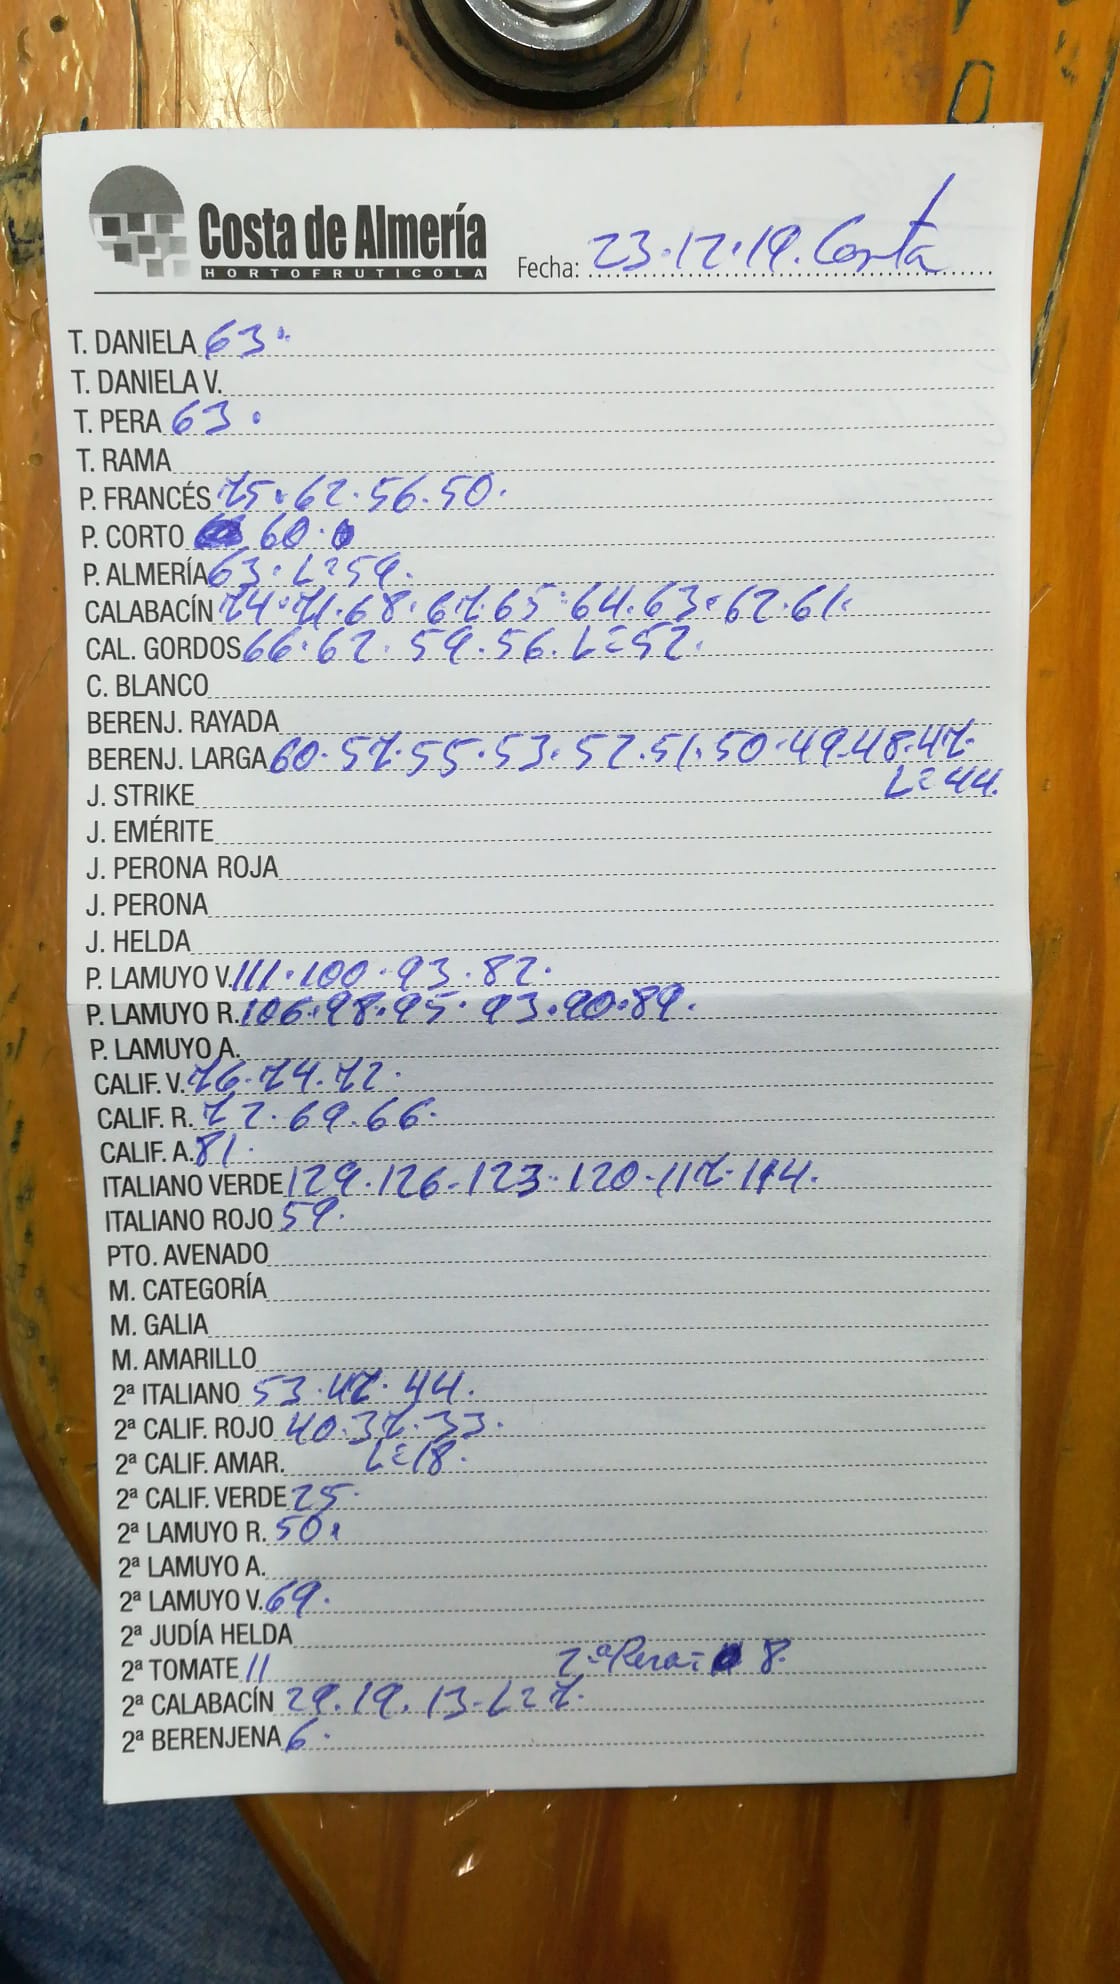 Costa de Almería
HORTOFRUTICOLA
Fecha: 23.12.19. Costa
T. DANIELA 63.
T. DANIELA V.
T. PERA 63.
T. RAMA
P. FRANCÉS 75.62.56.50.
P. CORTO 60.
P. ALMERÍA 63. L=59.
CALABACÍN 74.71.68.67.65.64.63.62.61.
CAL. GORDOS 66.62.59.56. L=52.
C. BLANCO
BERENJ. RAYADA
BERENJ. LARGA 60.57.55.53.52.51.50.49.48.47.
L=44.
J. STRIKE
J. EMÉRITE
J. PERONA ROJA
J. PERONA
J. HELDA
P. LAMUYO V. 111.100.93.82.
P. LAMUYO R. 106.98.95.93.90.89.
P. LAMUYO A.
CALIF. V. 76.74.72.
CALIF. R. 72.69.66.
CALIF. A. 81.
ITALIANO VERDE 129.126.123.120.117.114.
ITALIANO ROJO 59.
PTO. AVENADO
M. CATEGORÍA
M. GALIA
M. AMARILLO
2ª ITALIANO 53.47.44.
2ª CALIF. ROJO 40.37.33.
2ª CALIF. AMAR. L=18.
2ª CALIF. VERDE 25.
2ª LAMUYO R. 50.
2ª LAMUYO A.
2ª LAMUYO V. 69.
2ª JUDÍA HELDA
2ª TOMATE 11 2.ª Pera= 8.
2ª CALABACÍN 29.19.13. L=7.
2ª BERENJENA 6.